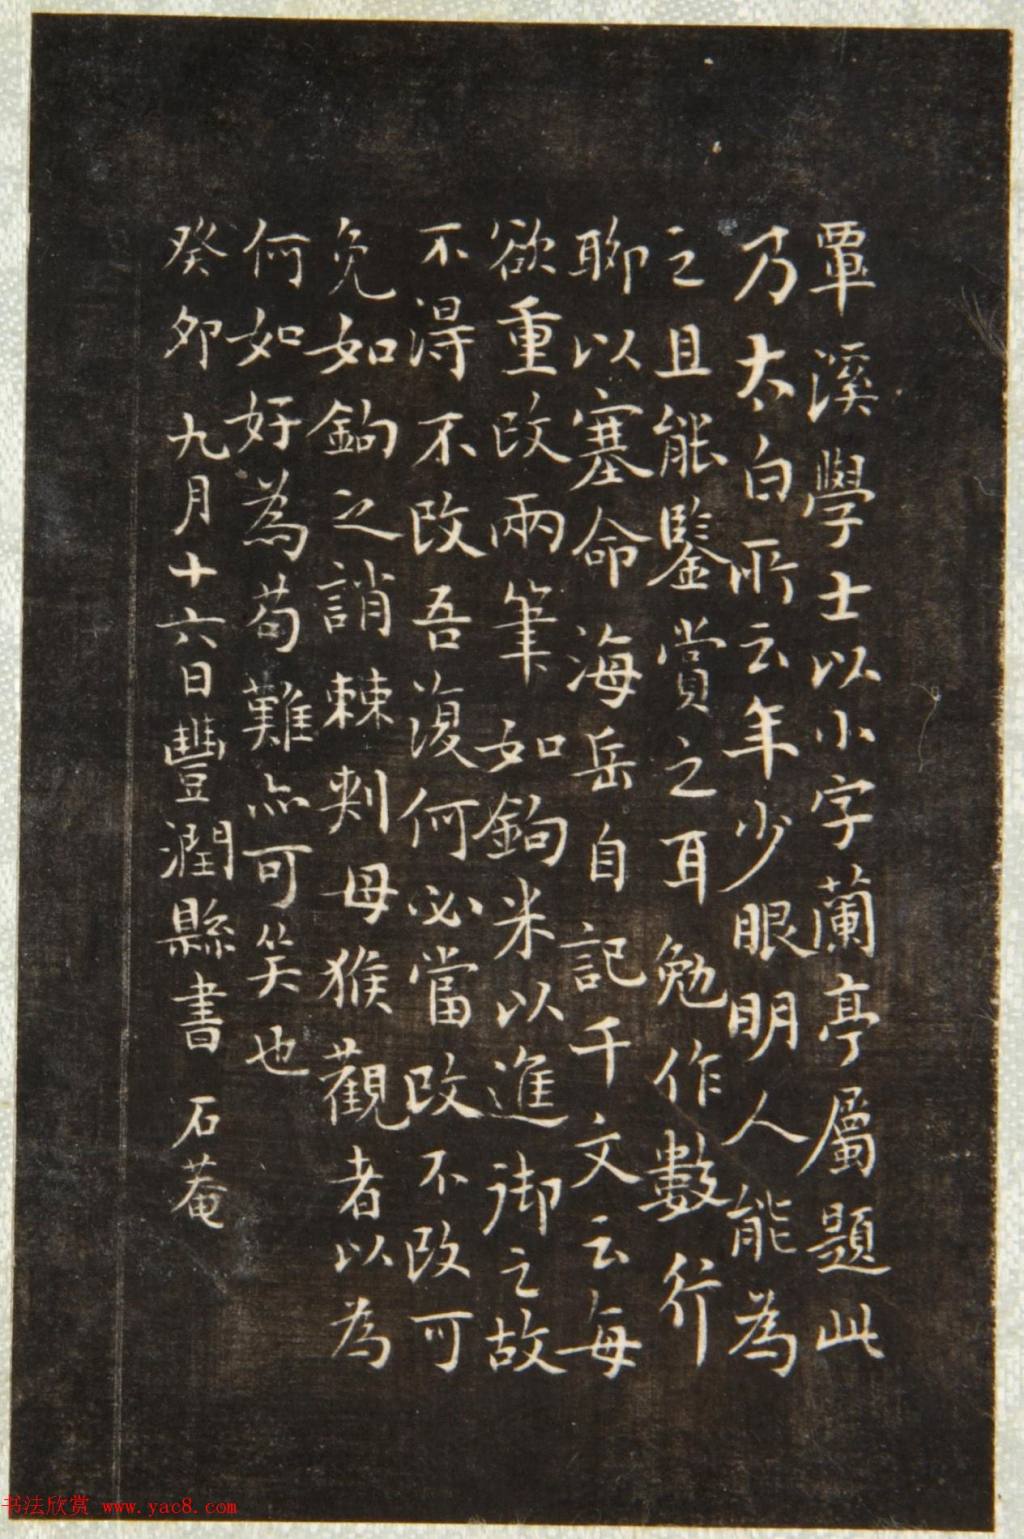 覃溪學士以小字蘭亭屬題此
乃太白所云年少眼明人能為
之且能鑒賞之耳勉作數行
聊以塞命海岳自記千文云每
欲重改兩筆如鉤米以進御之故
不得不改吾復何必當改不改可
免如鉤之誚棘刺母猴觀者以為
何如好為苟難亦可笑也
癸卯九月十六日豐潤縣書 石菴
书法欣赏 www.yac8.com